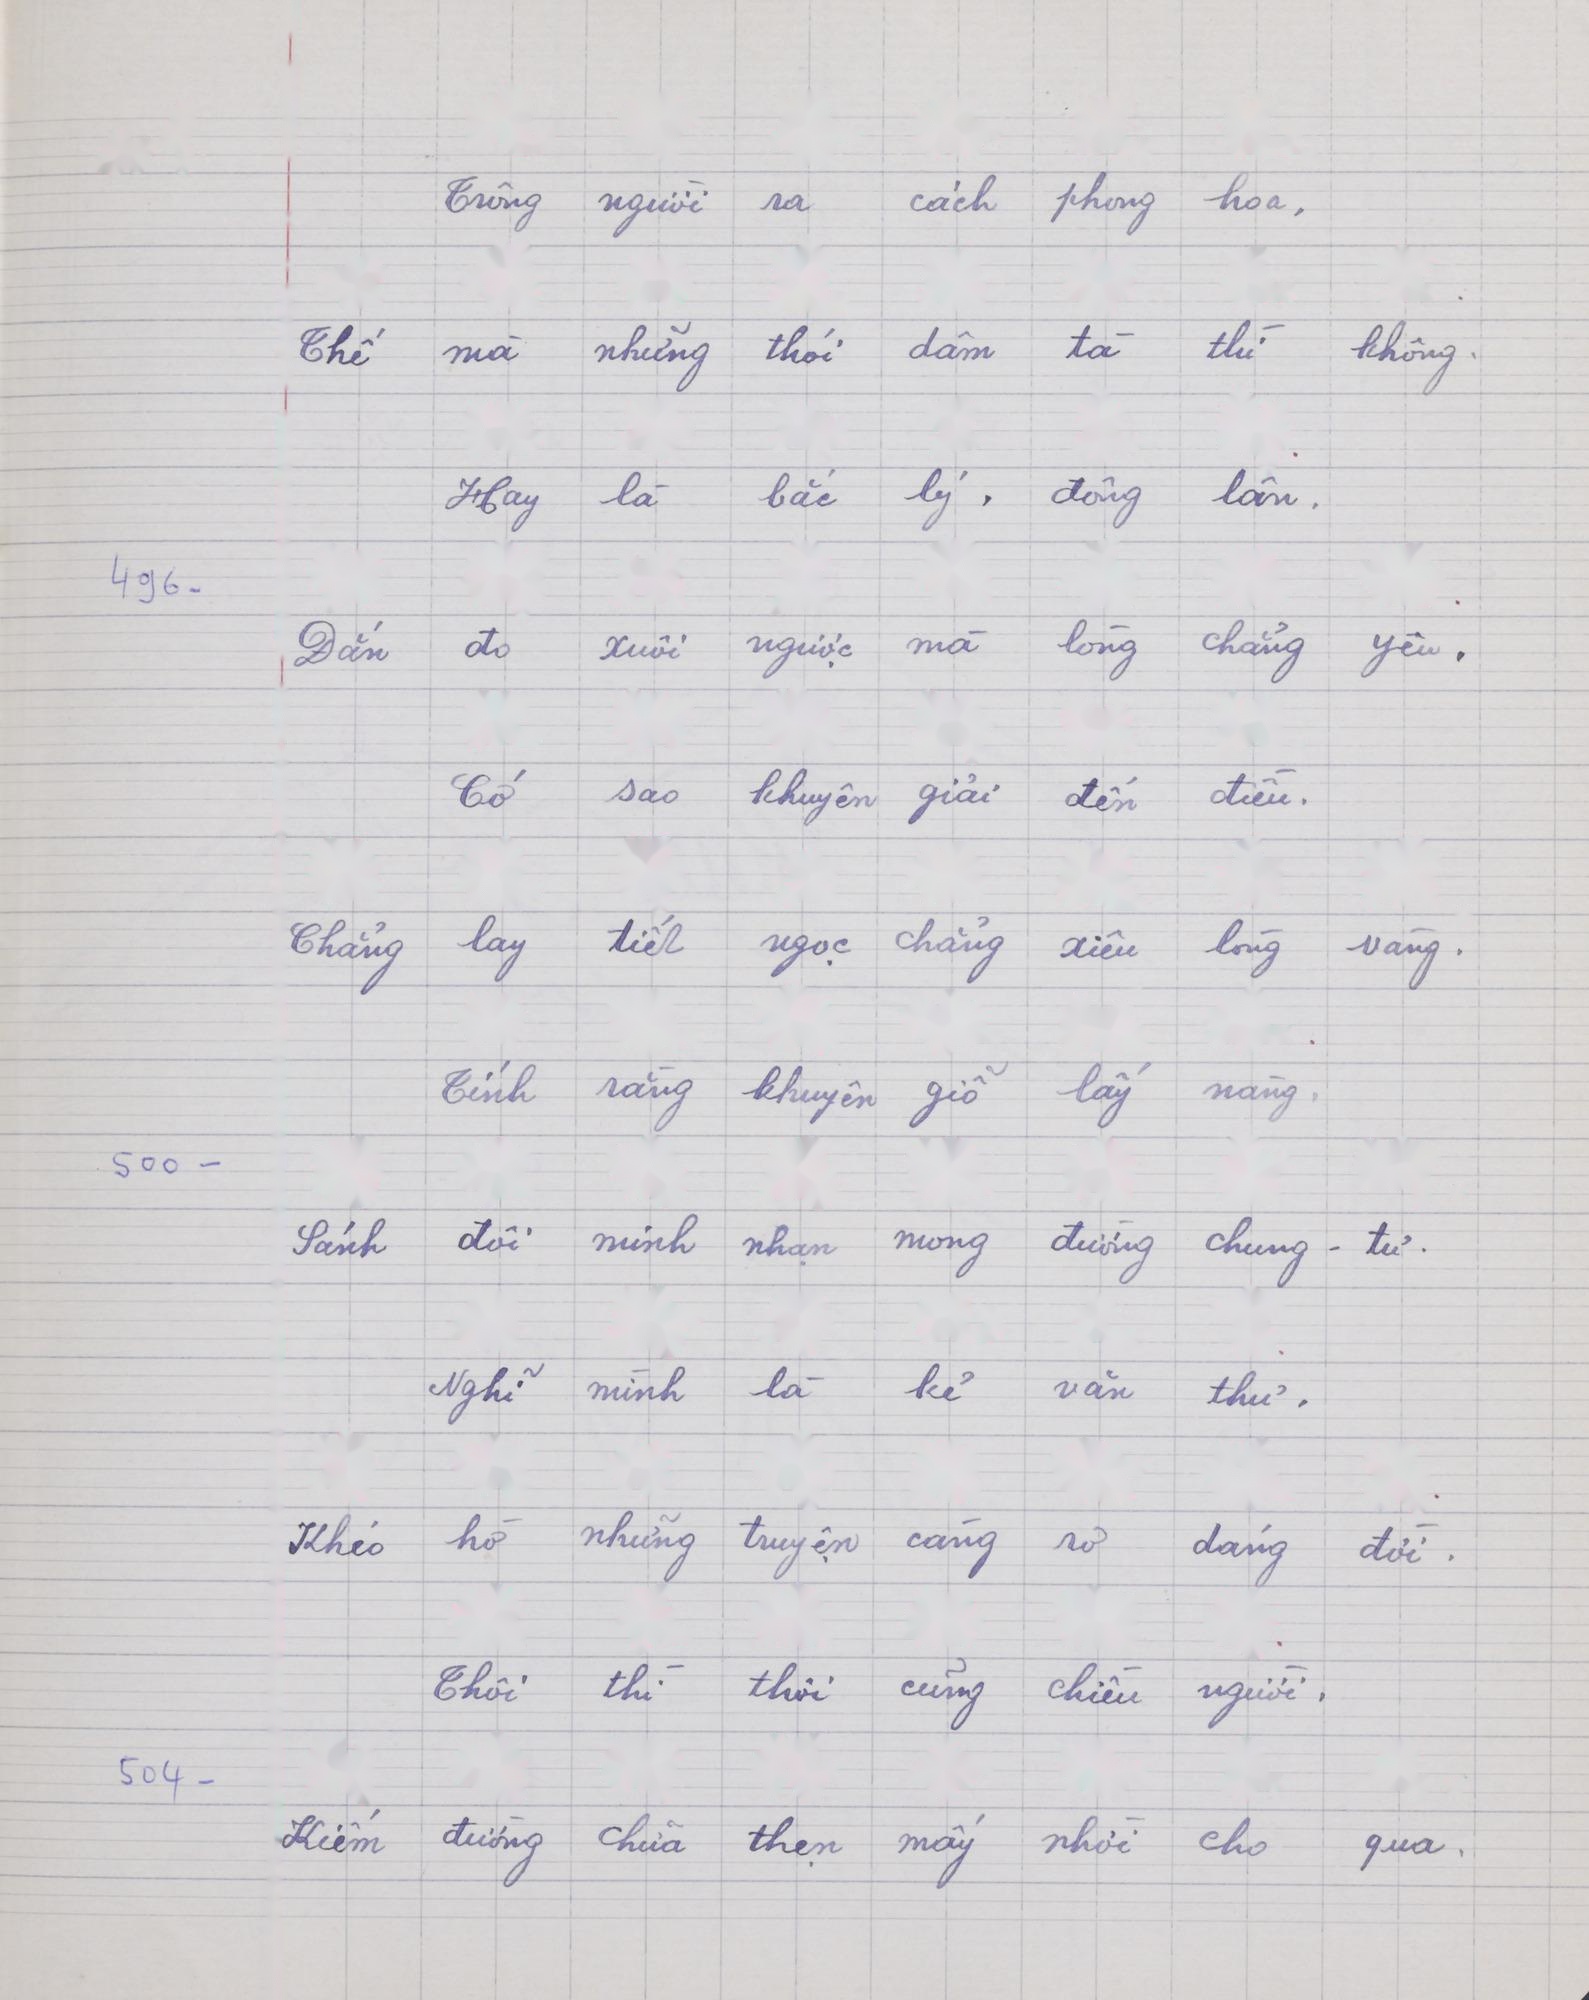 Trông người ra cách phong hoa,
Thế mà những thói dâm tà thì không.
Hay là bắc lý, đông lân,
496-
Dắn đo xuôi ngược mà lòng chẳng yên.
Cớ sao khuyên giải đến điều.
Chẳng lay tiết ngọc chẳng xiêu lòng vàng.
Tính rằng khuyên giỗ lấy nàng,
500 -
Sánh đôi minh nhạn mong đường chung - tư.
Nghĩ mình là kẻ văn thư,
Khéo hồ những truyện càng rơ dáng đời.
Thôi thì thôi cũng chiều người,
504 -
Kiếm đường chữa thẹn mấy nhời cho qua.